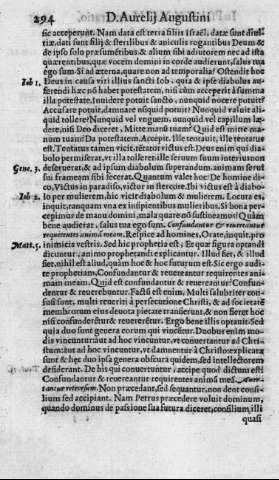 294 D. Aurelij Augustini
sic acceperunt. Nam data est terra filiis Israël, datæ sunt diui-
tiæ, dati sunt filij & sterilibus & ancillis rogantibus Deum &
de ipso solo præsumentibus & alium sibi adiutorem nec ad ista
quærentibus, quæ vocem dempsi in corde audierunt, salus tua
ego sum. Si ad æterna, quare non ad temporalia? Ostendit hoc
Iob 1. Deus in causa viri illius sancti Iob. quia & ipse diabolus au-
ferendi hæc nō habet potestatem, nisi cùm acceperit à summa
illa potestate. Inuidere potuit sancto, nunquid nocere potuit?
Accusare potuit, damnare nunquid potuit? Nunquid valuit ali-
quid tollere? Nunquid vel vnguem, nunquid vel capillum læ-
dere, nisi Deo diceret, Mitte manū tuam? Quid est mitte ma-
num tuam? Da potestatem. Accepit. Ille tentauit, ille tentatus
est. Tentatus tamen vicit: tētator victus est. Deus enim qui dia-
bolo permiserat, vt illa tolleret: ille seruum suum interius non
Gene. 3. deseruerat, & ad ipsum diabolum superandum, animam serui
sui frameam sibi fecerat. Quantum valet hoc? De homine di-
co, Victus in paradiso, victor in stercore. Ibi victus est à diabo-
Iob 2. lo per mulierem, hic vicit diabolum & mulierem. Locuta es,
inquit, tanquam vna ex insipientibus mulieribus. Si bona per-
cepimus de manu domini, mala quare nō sustineamus? Quàm
bene audierat, salus tua ego sum. Confundantur & reuereantur
requirentes animā meam. Respice ad homines, Orate, inquit, pro
Matt. 5. inimicis vestris. Sed hic prophetia est, Et quæ figura optandi
dicuntur, animo prophetantis explicantur. Illud fiet, & illud
fiet, nihil est aliud, quàm hoc & hoc futurum est. Sic ergo audi-
te prophetiam, Confundantur & reuereantur requirentes ani-
mam meam. Quid est confundantur & reuereantur? Confun-
dentur & reuerebuntur. Factū est enim. Multi salubriter con-
fusi sunt, multi reueriti à persecutione Christi, & ad societatē
membrorum eius deuota pietate transierunt, & non fieret hoc
nisi confunderētur & reuererētur. Ergo bene illis optauit. Sed
quia duo sunt genera eorum qui vincuntur. Duobus enim mo-
dis vincuntur: aut ad hoc vincuntur, vt conuertantur ad Chri-
stum: aut ad hoc vincuntur, vt damnentur à Christo: explicata
sunt & hęc duo ipsa genera obscurè quidem, sed intellectorem
desiderant. De his qui conuertuntur, accipe quod dictum est:
Confundantur & reuereantur requirentes animā meā. Auer-
tantur retrorsum. Non præcedant, sed sequantur, non dent consi-
lium sed accipiant. Nam Petrus præcedere voluit dominum,
quando dominus de passione sua futura diceret, consilium, illi
quasi